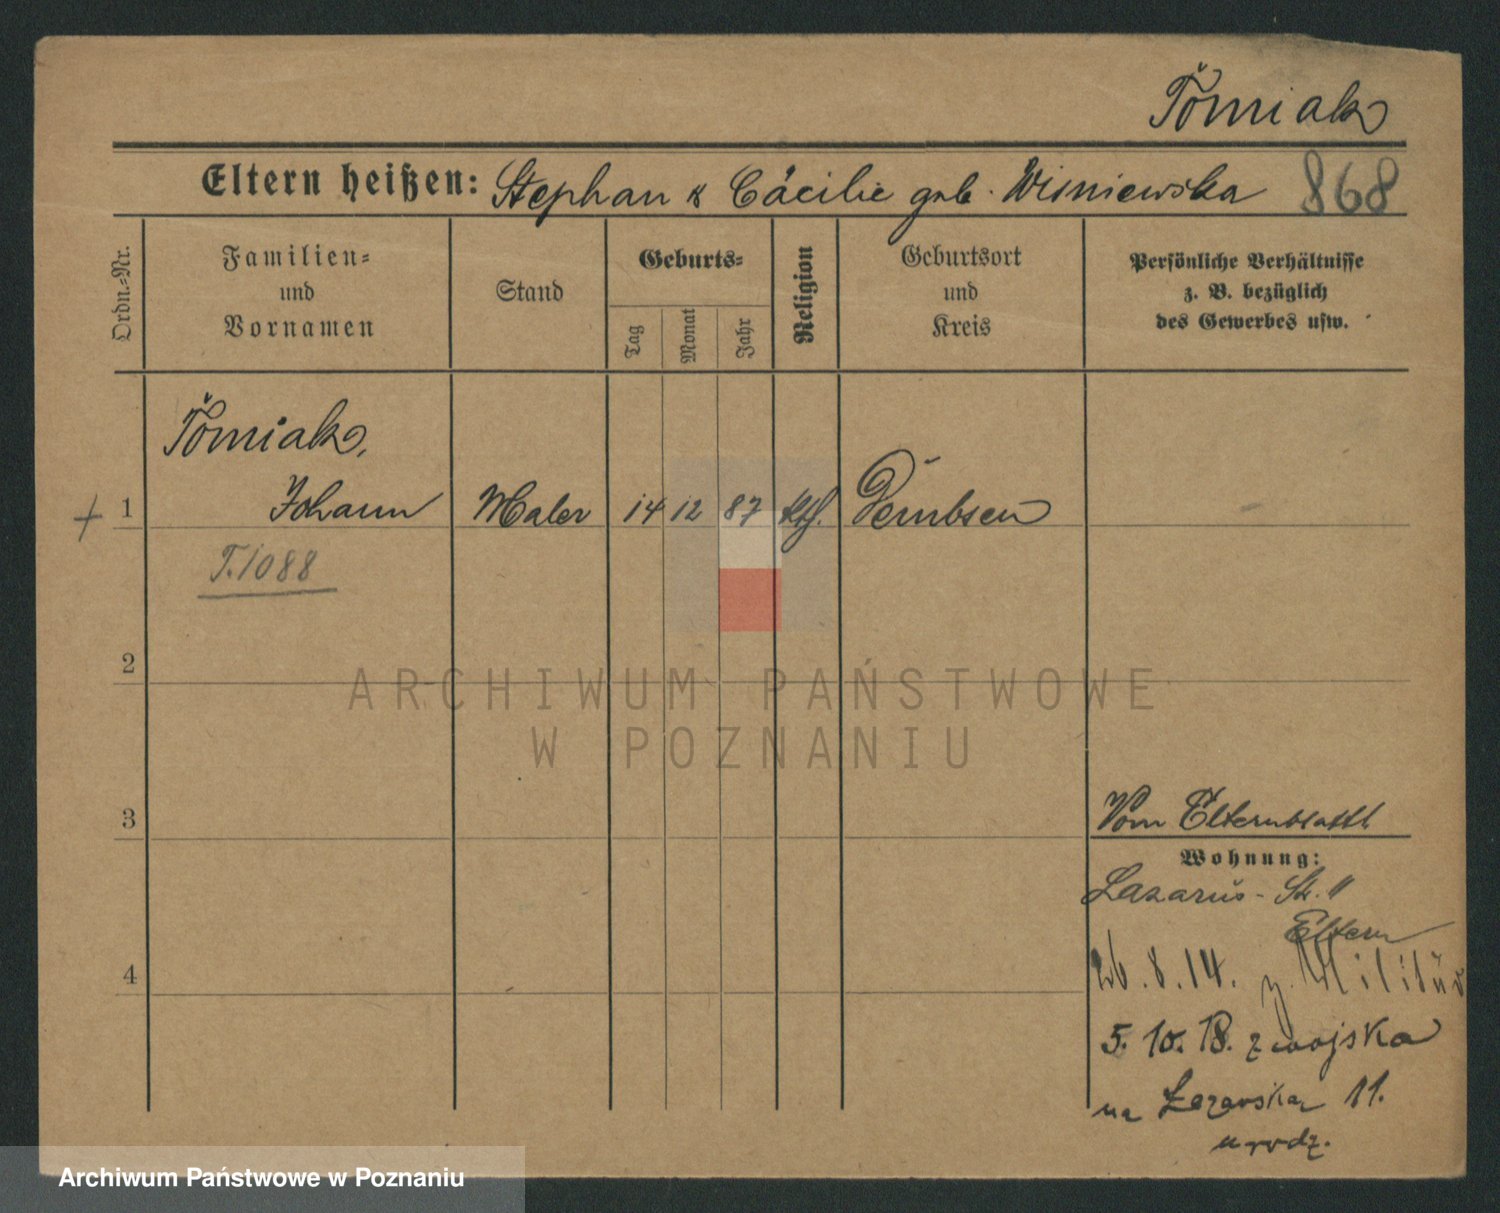 Tŏmiak
Eltern heißen: Stephan & Cäcilie geb. Wisniewska 868
Ordn.-Nr.
Familien-
und
Vornamen
Stand
Geburts-
Tag
Monat
Jahr
Religion
Geburtsort
und
Kreis
Persönliche Verhältnisse
z. B. bezüglich
des Gewerbes usw.
Tŏmiak,
+ 1 Johann Maler 14 12 87 kth. Dembsen
T. 1088
2
ARCHIWUM PAŃSTWOWE
W POZNANIU
3
Vom Elternblatt
Wohnung:
Lazarus-Str. 11
Eltern
4
26.8.14. z. Militär
5.10.18. z wojska
na Łazarska 11.
u rodz.
Archiwum Państwowe w Poznaniu